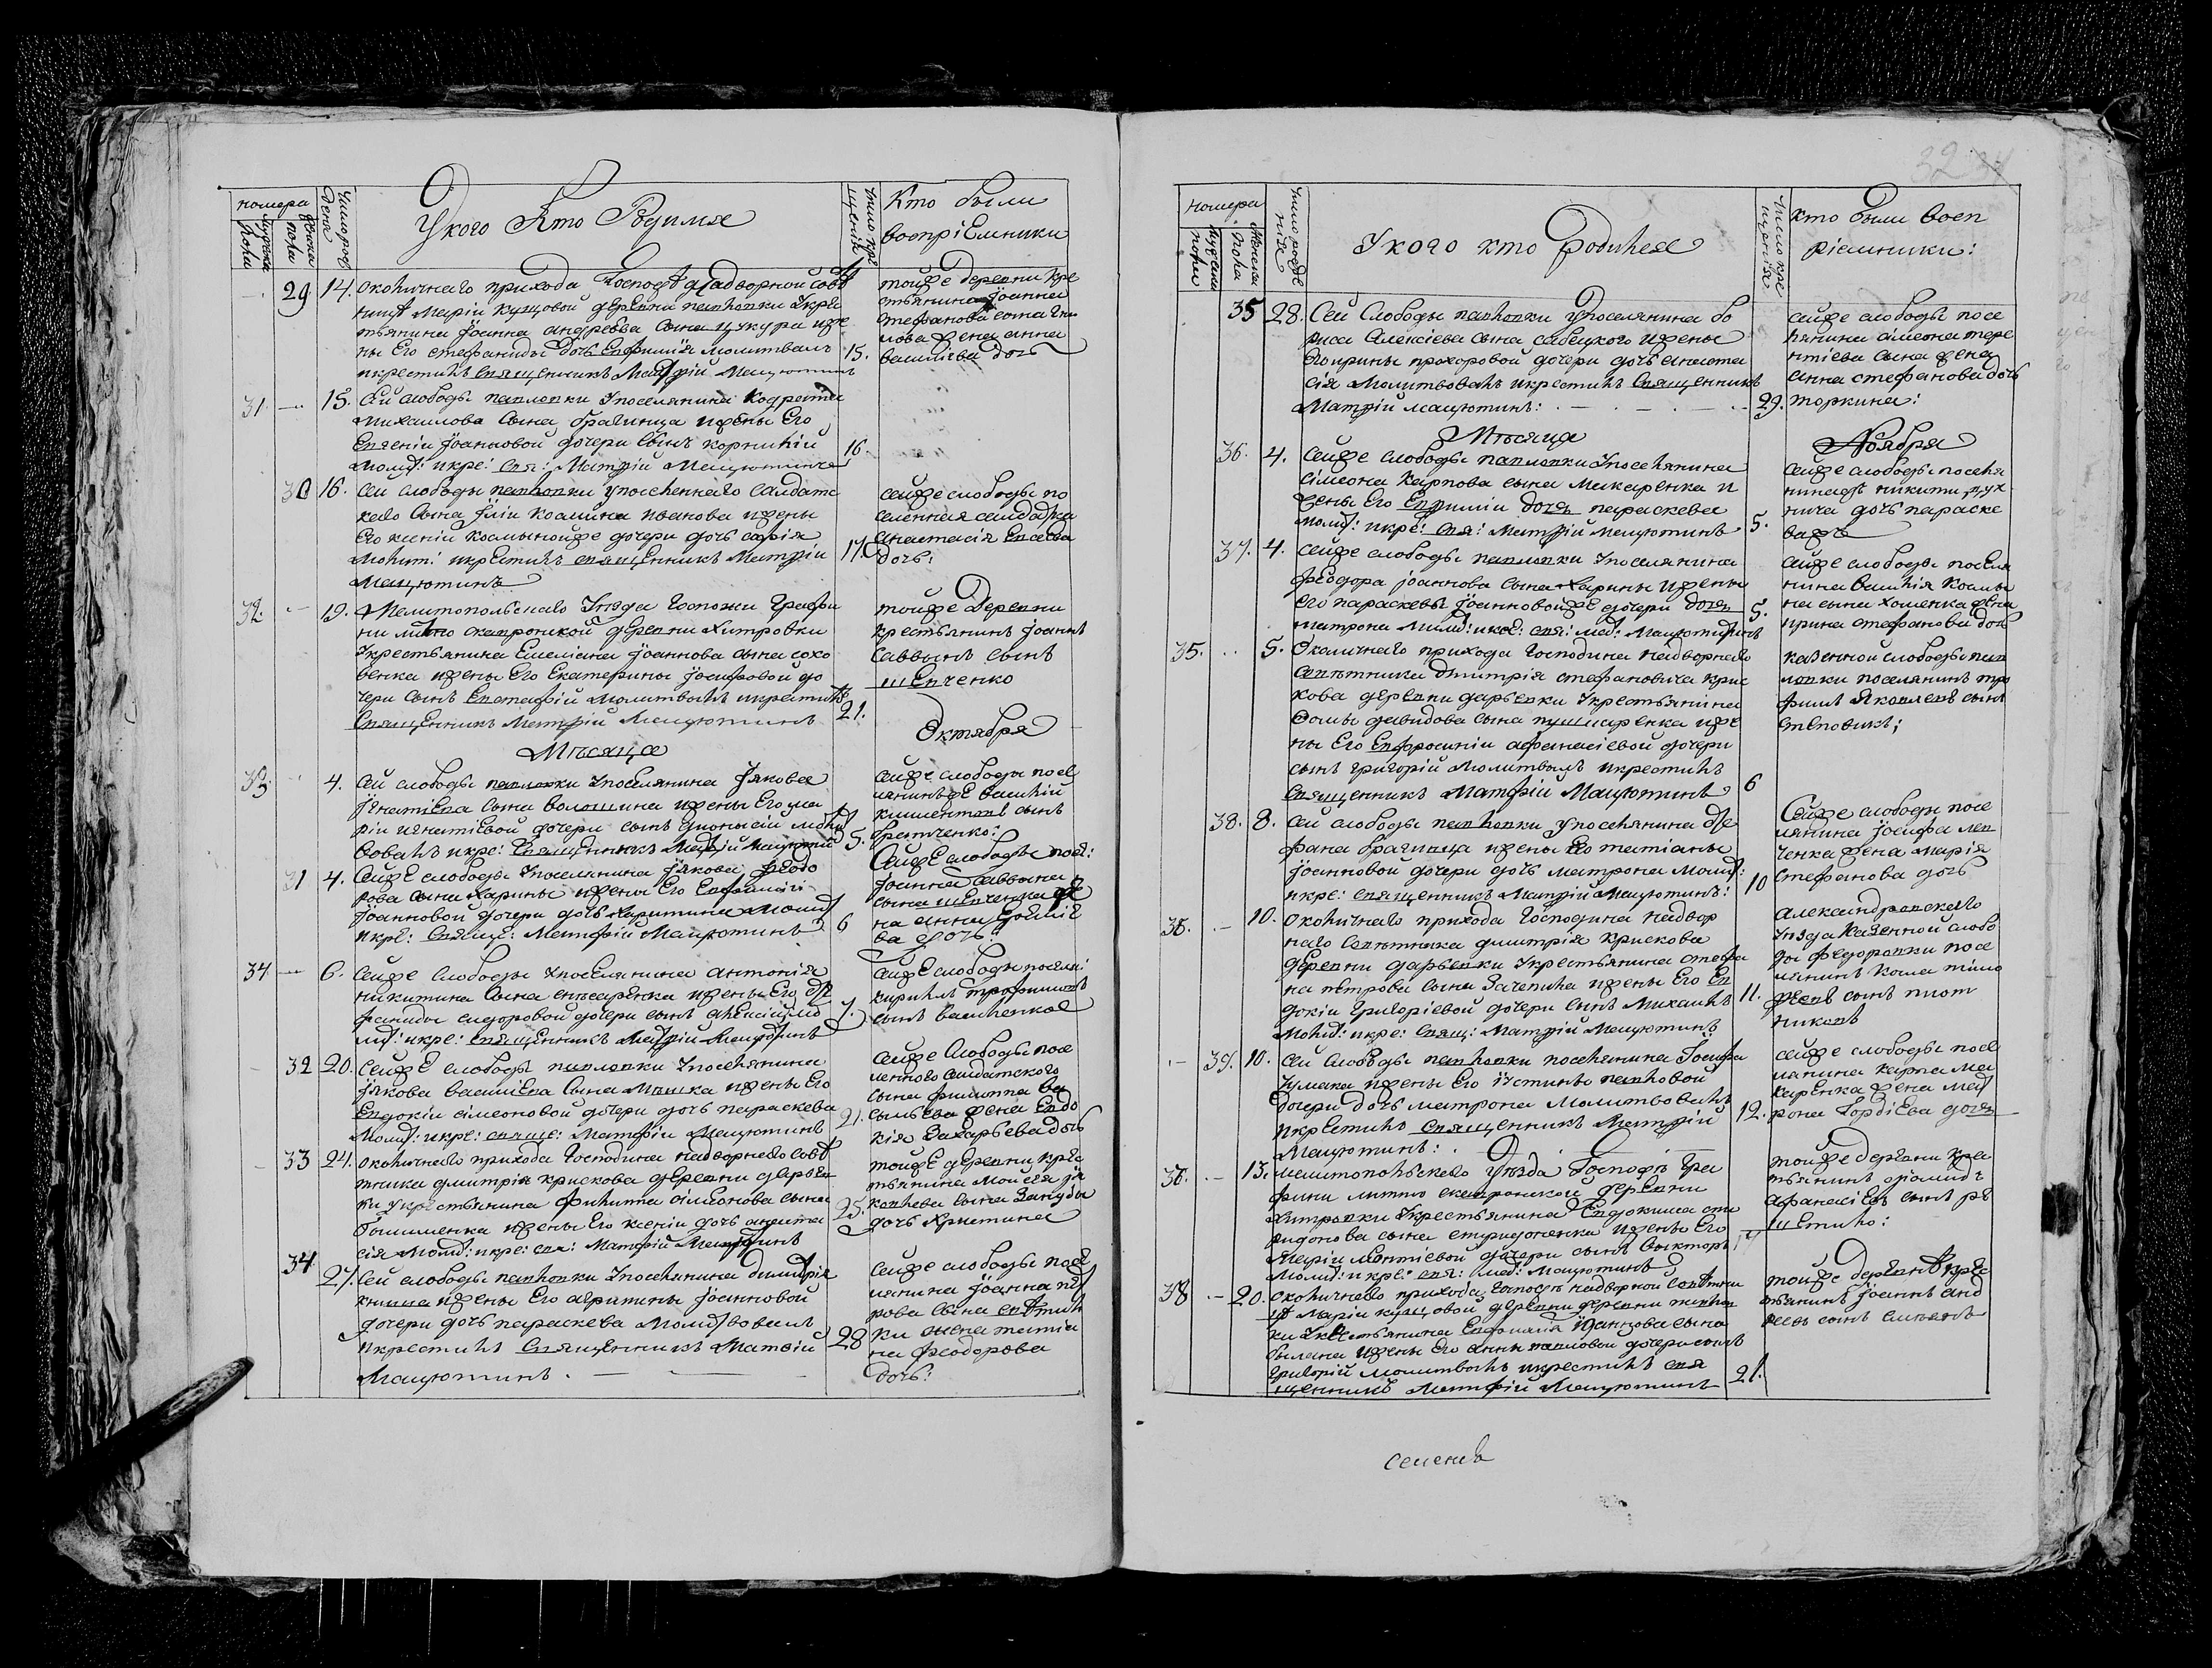 номера
Число рож
дения
У кого Кто Родился
Число кре
щенія
Кто были
воспріемники
29 14. околичнаго прихода Госпожѣ надворной совѣ
тницѣ Маріи Кущовой деревни павловки Укре
стьянина Іоанна андреева сына цукура и же
ны Его стефаниды дочь Евфимія молитвалъ
и крестилъ священникъ Матѳій Мацютинъ
15.
тойже деревни кре
стьянина Іоанна
стефанова сына
жена анна
василіева дочь
31 — 15. Сей слободы павловки Упоселянина Кодрата
Михаилова сына брагинца и жены Его
Евгеніи Іоанновой дочери сынъ корнилій
молит: и кре: свя: Матѳій Мацютинъ
16.
30 16. сей слободы павловки упоселеннаго салдатс
каго сына Иліи космина иванова и жены
Его ксеніи космыной же дочери дочь софія
молит: и крестилъ священникъ Матѳій
Мацютинъ
17.
сейже слободы по
селенная салдатка
анастасія Евсеева
дочь:
32. — 19. Мелитопольскаго Уѣзда Госпожи Графи
ни литто скавронской деревни хитровки
Укрестьянина Емеліана Іоаннова сына сохо
венка и жены Его Екатерины Іосифовой до
чери сынъ Евстафій молитвалъ и крестилъ
Священникъ Матѳій Мацютинъ
21.
тойже деревни
крестьянинъ Іоаннъ
Саввынъ сынъ
шевченко
Мѣсяца
Октября
33. 4. сей слободы павловки Упоселянина Іякова
Игнатіева сына волошина и жены Его ма
ріи игнатіевой дочери сынъ Діонысій молит
вовалъ и кре: Священникъ Матѳій Мацютинъ
5.
сейже слободы посе
лянинъ же василій
климентовъ сынъ
братченко:
31 4. Сейже слободы Упоселянина Іякова Ѳеодо
рова сына харины и жены Его Евфиміи
Іоанновой дочери дочь харитина молит
и кре: Священ: Матѳій Мацютинъ
6
Сейже слободы посе:
Іоанна саввына
сына шевченка же
на анна
ва дочь:
34 — 6. Сейже слободы Упоселянина антонія
никитина сына слѣсаренка и жены Его сте
фаниды сидоровой дочери сынъ алексій мо
лит: и кре: священникъ Матѳій Мацютинъ
7.
сейже слободы поселя:
кирилъ трофимовъ
сынъ василенков
32 20. Сейже слободы павловки Упоселянина
Іякова василіева сына Мошка и жены Его
Евдокіи симеоновой дочери дочь параскева
Молит: и кре: священ: Матѳій Мацютинъ
21.
сейже слободы посе
леннаго салдатскаго
сына филиппа ва
сильева жена Евдо
кія захарьева дочь
33 24. околичнаго прихода Господина надворнаго совѣ
тника димитрія крискова деревни дарьев
ки укрестьянина филипа симеонова сына
и жены Его ксеніи дочь анаста
сія молит: и кре: свя: Матѳій Мацютинъ
25.
тойже деревни кре
стьянина Моисея Іа
ковлева сына занузди
дочь христина
34 27. Сей слободы павловки Упоселянина димитрія
книша и жены Его агрипины Іоанновой
дочери дочь параскева молитвовалъ
и крестилъ Священникъ Матѳій
Мацютинъ.
28
сейже слободы посе
лянина Іоанна пет
рова сына
ки жена татіа
на ѳеодорова
дочь:
32
номера
Число рожде
нія
У кого кто родился
Число кре
щенія
кто были восп
ріемники:
35 28. Сей Слободы павловки Упоселянина бо
риса Алексіева сына савецкого и жены
его ирины прохоровой дочери дочь анаста
сія Молитвовалъ и крестилъ Священникъ
Матѳій мацютинъ:
29.
сейже слободы посе
лянина симеона тере
нтіева сына жена
Анна стефанова дочь
торкина:
Мѣсяца
Ноября
36. 4. Сейже слободы павловки Упоселянина
сімеона Карпова сына Макаренка и
жены Его Евфиміи дочь параскева
молит: и кре: свя: Матѳій Мацютинъ
5.
сейже слободы поселя
нина никиты
нича дочь параске
ва
37. 4. сейже слободы павловки Упоселянина
феодора Іоаннова сына харины и жены
его параскевы Іоанновой же дочери дочь
матрона молит: и кре: свя: мат: Мацютинъ
5.
сейже слободы поселя
нина василія Косми
на сына хоменка жена
ирина стефанова дочь
35. 5. Околичнаго прихода Господина надворнаго
советника димитрія стефановича крис
кова деревни дарьевки Укрестьянина
Фомы давидова сына пушкаренка и же
ны Его Евфросиніи афанасіевой дочери
сынъ григорій молитвалъ и крестилъ
священникъ Матѳій Мацютинъ
6
казенной слободы пав
ловки поселянинъ тро
фимъ Яковлевъ сынъ
степовикъ;
38. 8. сей слободы павловки упоселянина сте
фана брагинца и жены Его татіаны
Іоанновой дочери дочь матрона Молит:
и кре: священникъ Матѳій Мацютинъ:
10
Сейже слободы посе
лянина Іосифа лев
ченка жена марія
Стефанова дочь
36. — 10. околичнаго прихода Господина надвор
наго Советника димитрія Крискова
деревни дарьевки Укрестьянина стефа
на петрова сына и жены Его Ев
докіи Григоріевой дочери сынъ Михаилъ
молит: и кре: Свящ: Матѳій Мацютинъ
11.
александровскаго
уѣзда Казенной слобо
ды федоровки посе
лянинъ Козма тимо
феевъ сынъ плот
никовъ
39. 10. Сей слободы павловки поселянина Іосифа
чумака и жены Его Іустины павловой
дочери дочь матрона Молитвовалъ
и крестилъ священникъ Матѳій
Мацютинъ:
12.
сейже слободы посе
лянина карпа ма
каренка жена мат
рона Гордіева дочь
13. мелитопольскаго Уѣзда Госпожѣ Гра
фини литто скавронской деревни
хитровки Укрестьянина Евдокима спи
ридонова сына спиридоненка и жены Его
Маріи леонтіевой дочери сынъ викторъ
Молит: и кре: свя: мат: Мацютинъ
тойже деревни кре
стьянинъ
Афанасіевъ сынъ ре
шетило:
38 — 20. околичнаго прихода Госпожѣ надворной советни
цѣ Маріи кущовой деревни деревни павлов
ки Укрестьянина Евфимія Іоаннова сына
и жены Его анны павловой дочери сынъ
григорій молитвалъ и крестилъ свя
щенникъ Матѳій Мацютинъ
21.
тойже деревнѣ кре
стьянинъ Іоаннъ анд
реевъ сынъ
семенъ